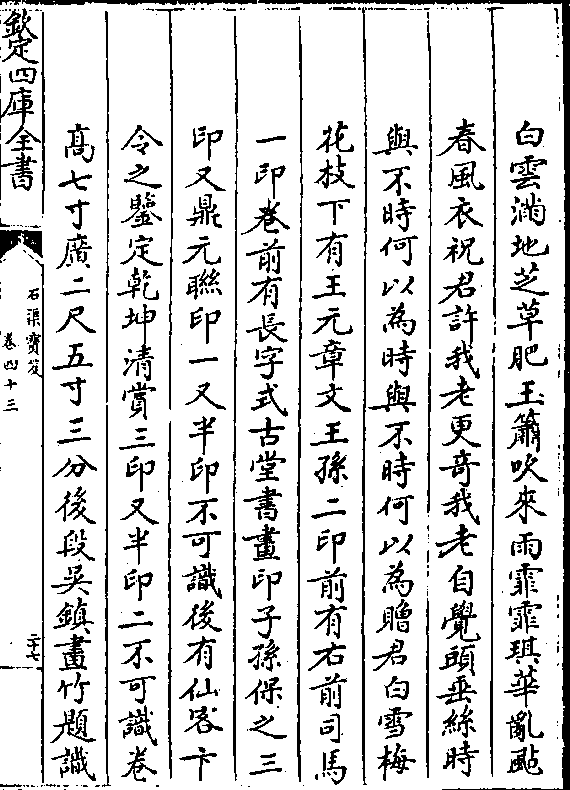 白雲滿地芝草肥玉簫吹來雨霏霏琪華亂颭
春風衣祝君許我老更竒我老自覺頭垂絲時
與不時何以為時與不時何以為贈君白雪梅
花枝下有王元章文王孫二印前有右前司馬
一印卷前有長字式古堂書畫印子孫保之三
印又鼎元聯印一又半印不可識後有仙客卞
令之鑒定乾坤清賞三印又半印二不可識卷
高七寸廣二尺五寸三分後段吳鎮畫竹題識
欽定四庫全書
石渠寶笈
卷四十三
二十七